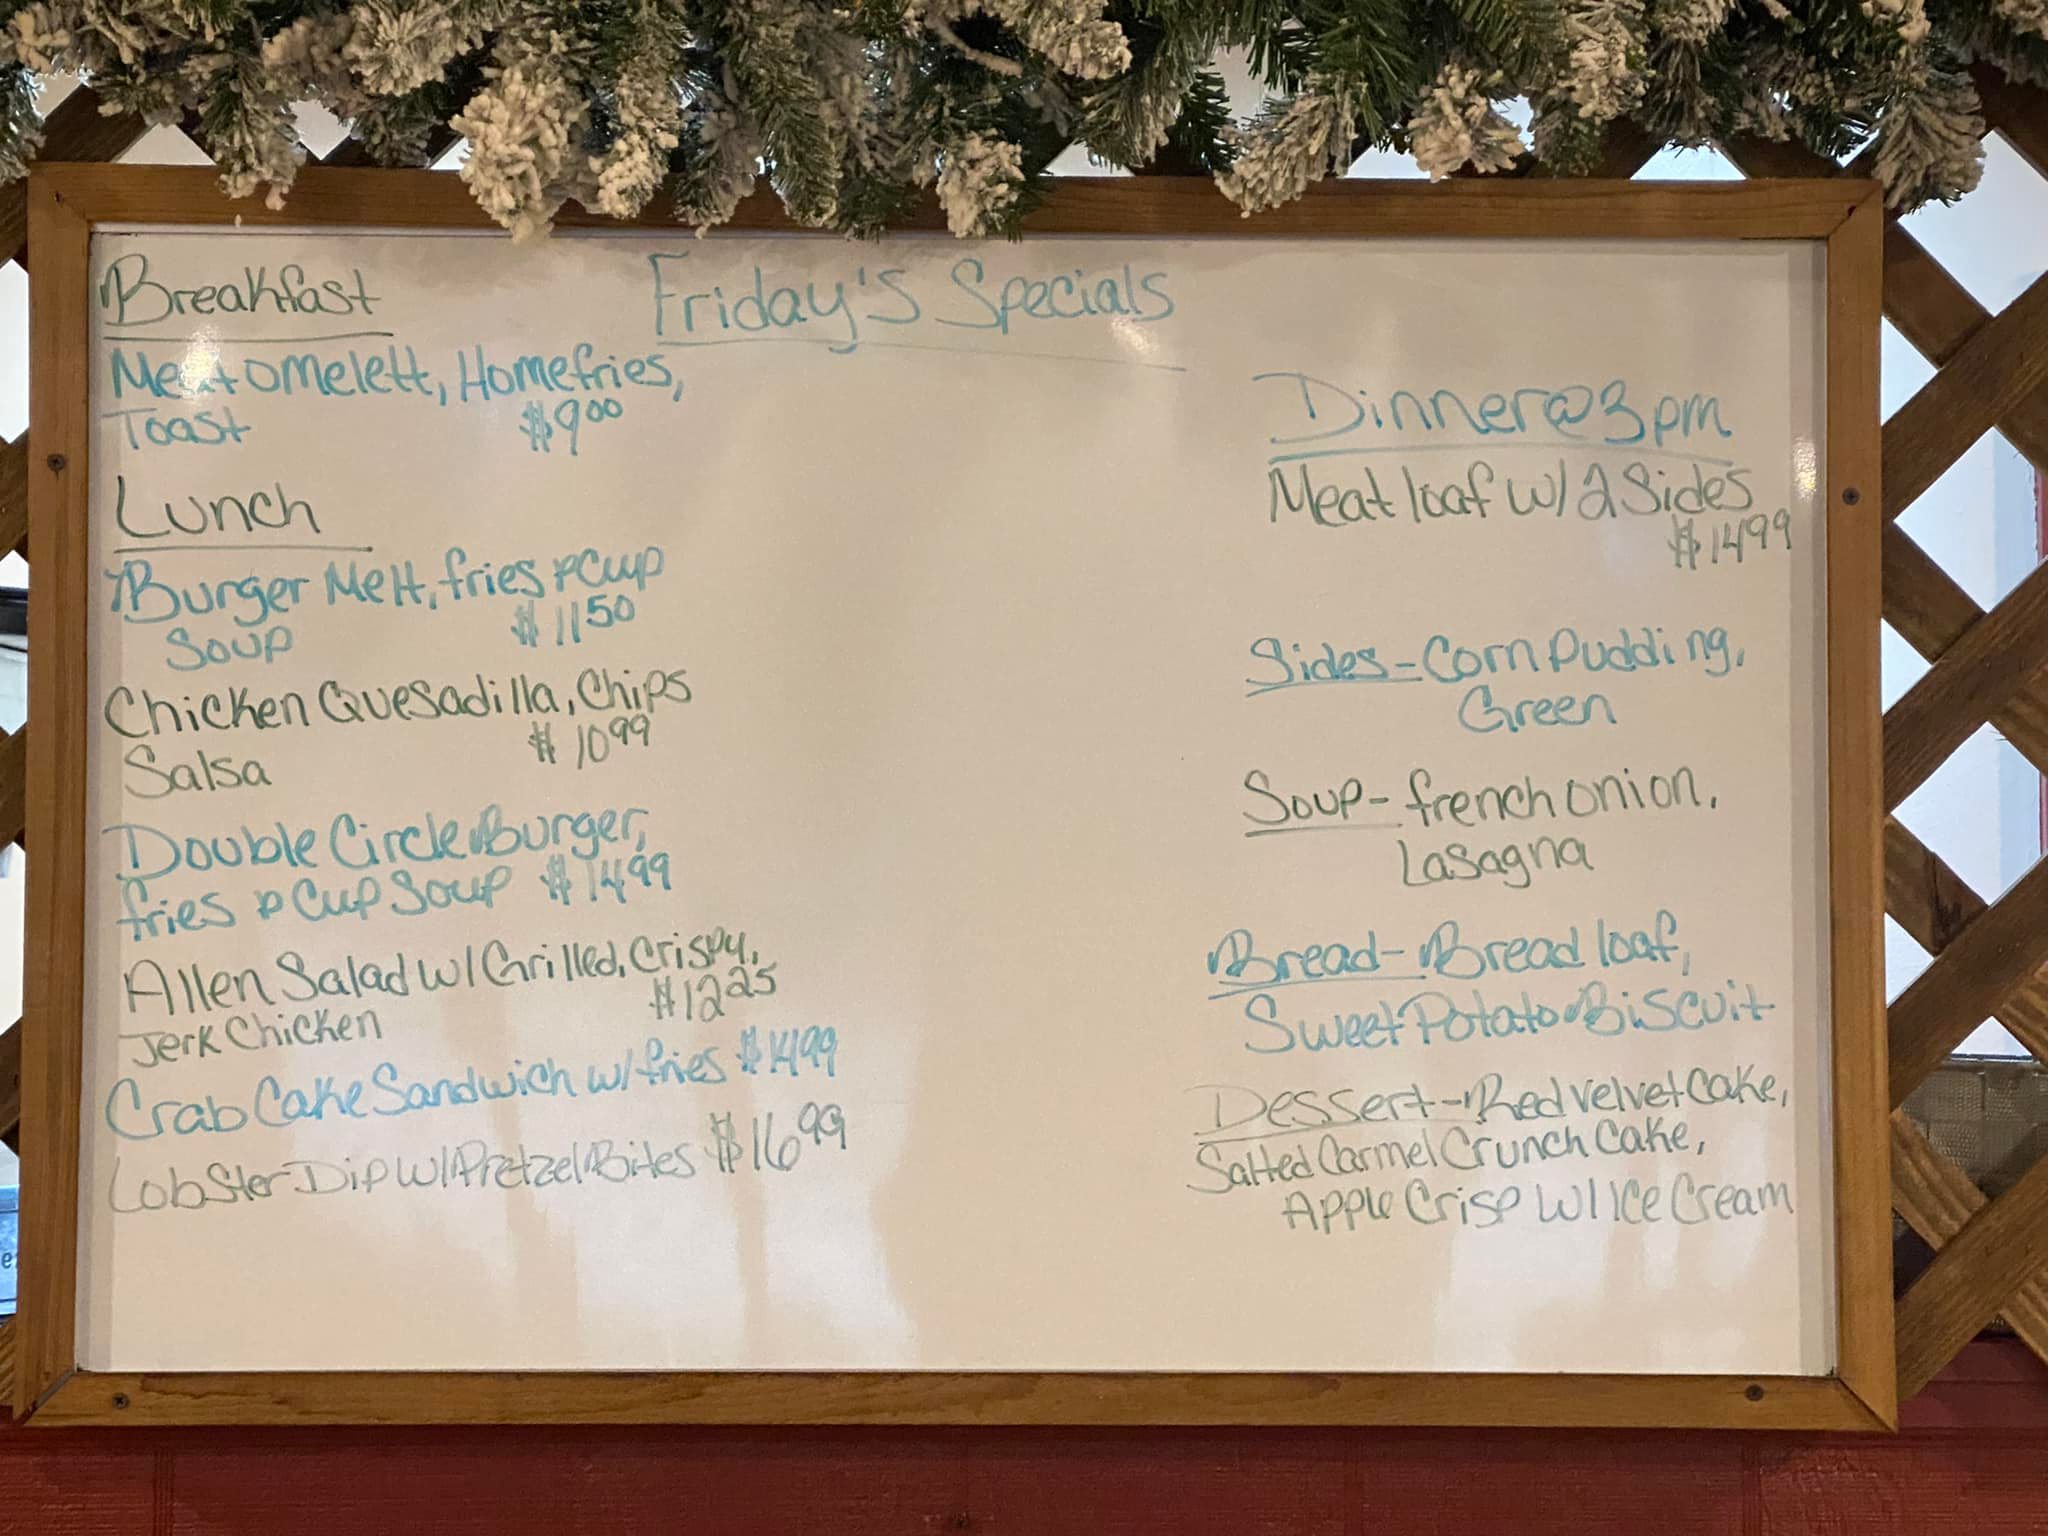 Friday's Specials
Breakfast
Meat omelett, Homefries,
Toast $9.00
Lunch
Burger Melt, fries & Cup
Soup $11.50
Chicken Quesadilla, Chips
Salsa $10.99
Double Circle Burger,
fries & Cup Soup $14.99
Allen Salad w/ Grilled, Crispy,
Jerk Chicken $12.25
Crab Cake Sandwich w/ fries $14.99
Lobster Dip w/ Pretzel Bites $16.99
Dinner @ 3pm
Meat loaf w/ 2 Sides
$14.99
Sides - Corn Pudding,
Green
Soup - french onion,
Lasagna
Bread - Bread loaf,
Sweet Potato Biscuit
Dessert - Red Velvet Cake,
Salted Carmel Crunch Cake,
Apple Crisp w/ Ice Cream